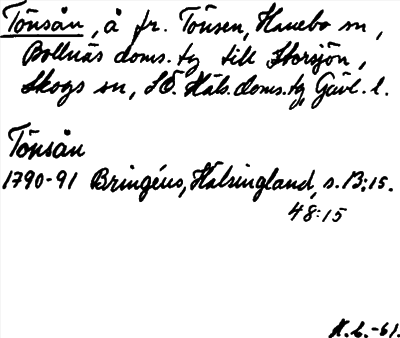 Tönsån, å fr. Tönsen, Hanebo sn,
Bollnäs doms. tg till Storsjön,
Skogs sn, SÖ. Häls. doms. tg, Gävl. l.
Tönsån
1790-91 Bringéus, Hälsingland, s. 13:15.
48:15
K.L.-61.